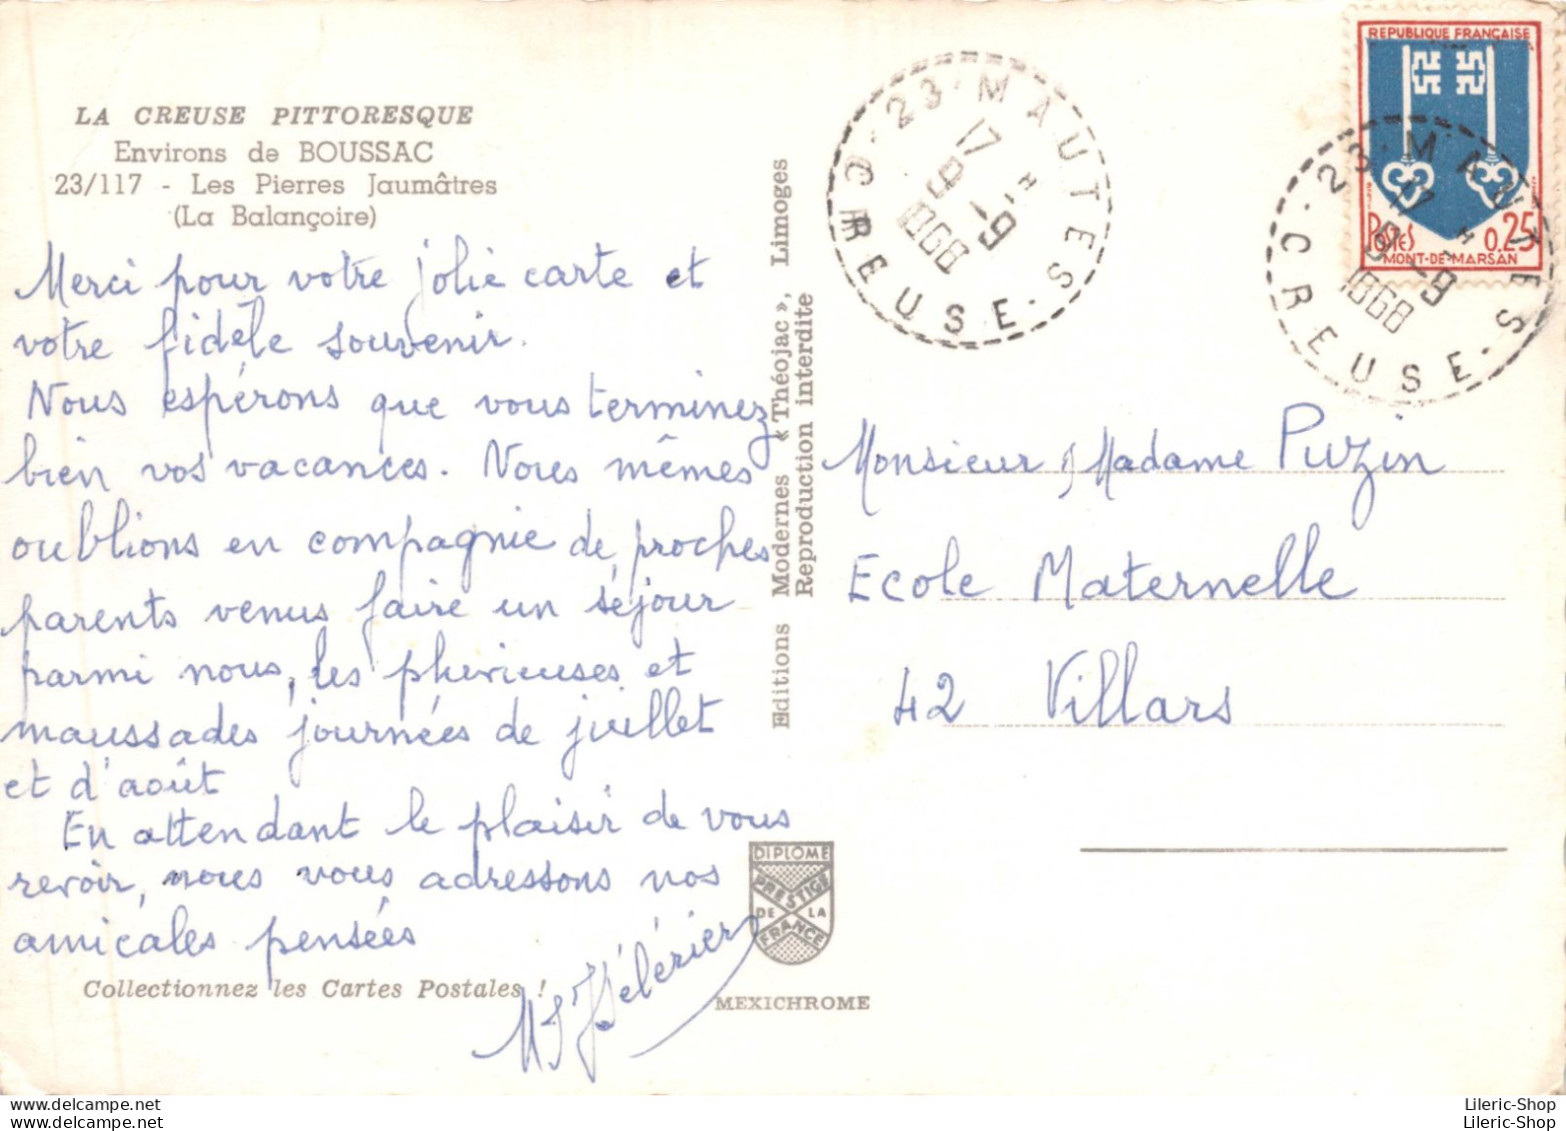 LA CREUSE PITTORESQUE
Environs de BOUSSAC
23/117 - Les Pierres Jaumâtres
(La Balançoire)
Merci pour votre jolie carte et
votre fidèle souvenir.
Nous espérons que vous terminez
bien vos vacances. Nous mêmes
oublions en compagnie de proches
parents venus faire un séjour
parmi nous, les pluvieuses et
maussades journées de juillet
et d'août
En attendant le plaisir de vous
revoir, nous vous adressons nos
amicales pensées
Collectionnez les Cartes Postales !
Editions Modernes « Théojac », Limoges
Reproduction interdite
DIPLOME
PRESTIGE
DE LA
FRANCE
MEXICHROME
23 - MAUTES
17 H
9 - 9
1968
CREUSE
REPUBLIQUE FRANÇAISE
POSTES 0,25
MONT-DE-MARSAN
23 - MAUTES
17 H
9 - 9
1968
CREUSE
Monsieur, Madame Puzin
Ecole Maternelle
42 Villars
Lileric-Shop
Lileric-Shop
www.delcampe.net
www.delcampe.net